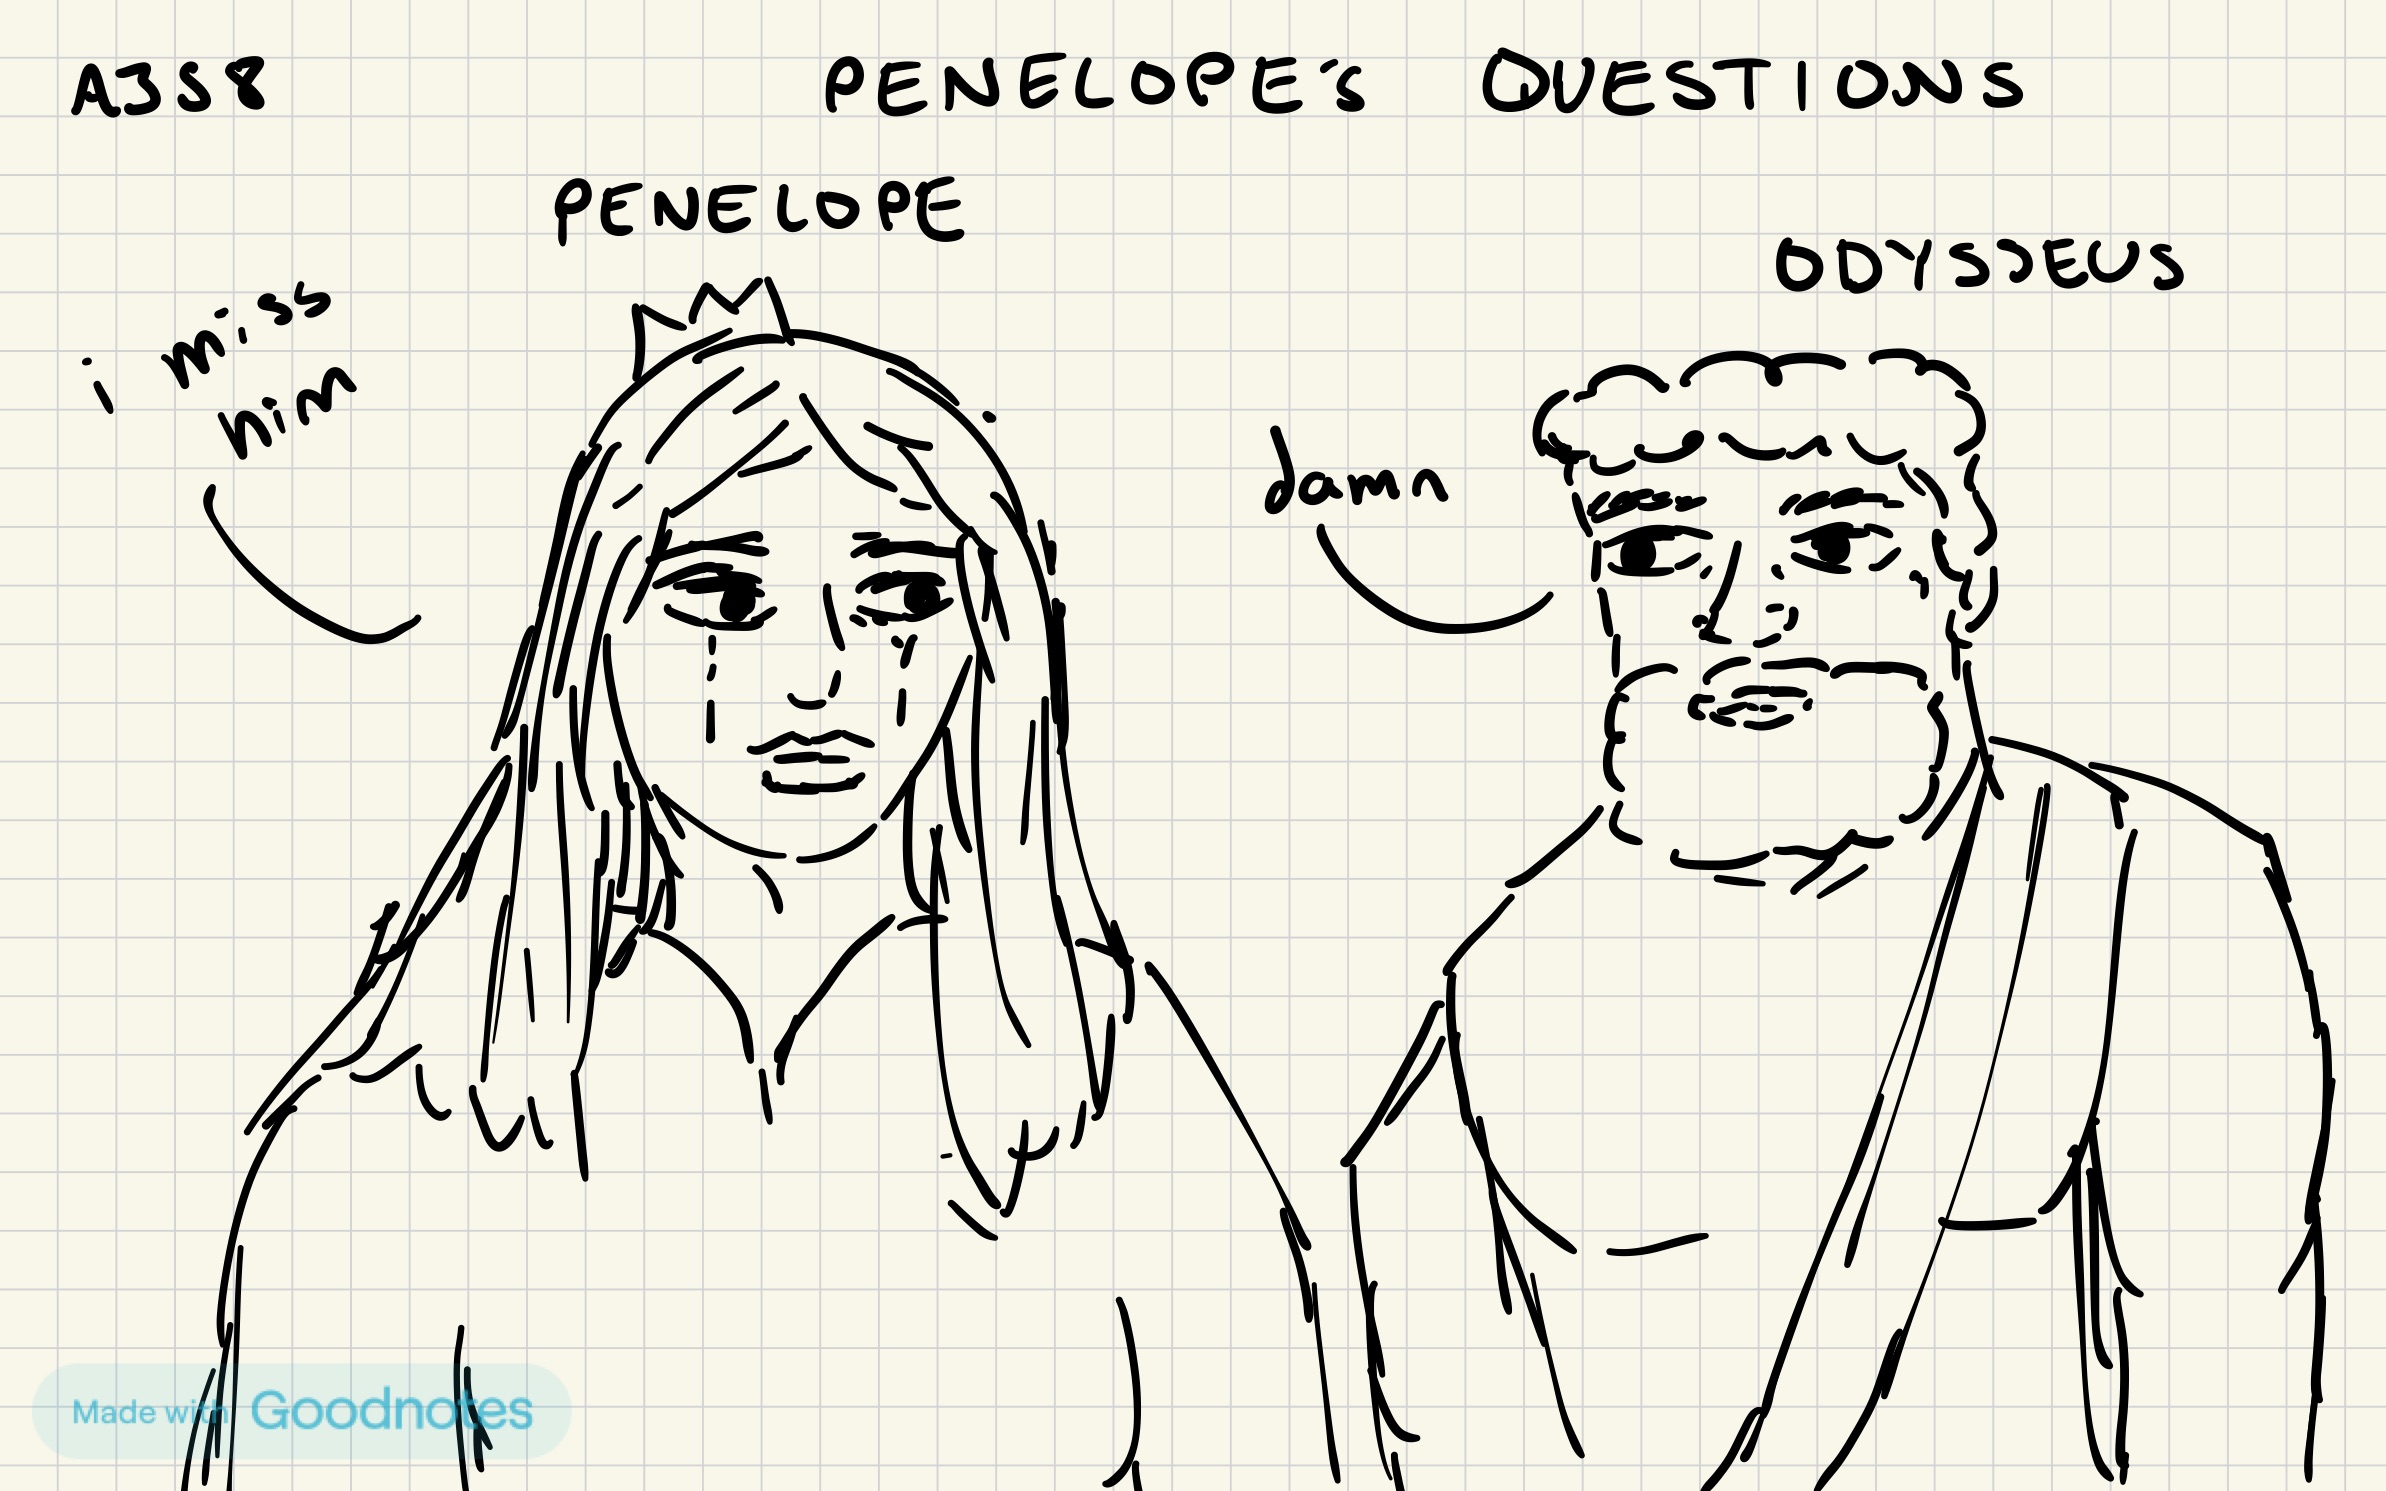 A3S8
PENELOPE's QUESTIONS
PENELOPE
ODYSSEUS
i miss
him
damn
Made with Goodnotes